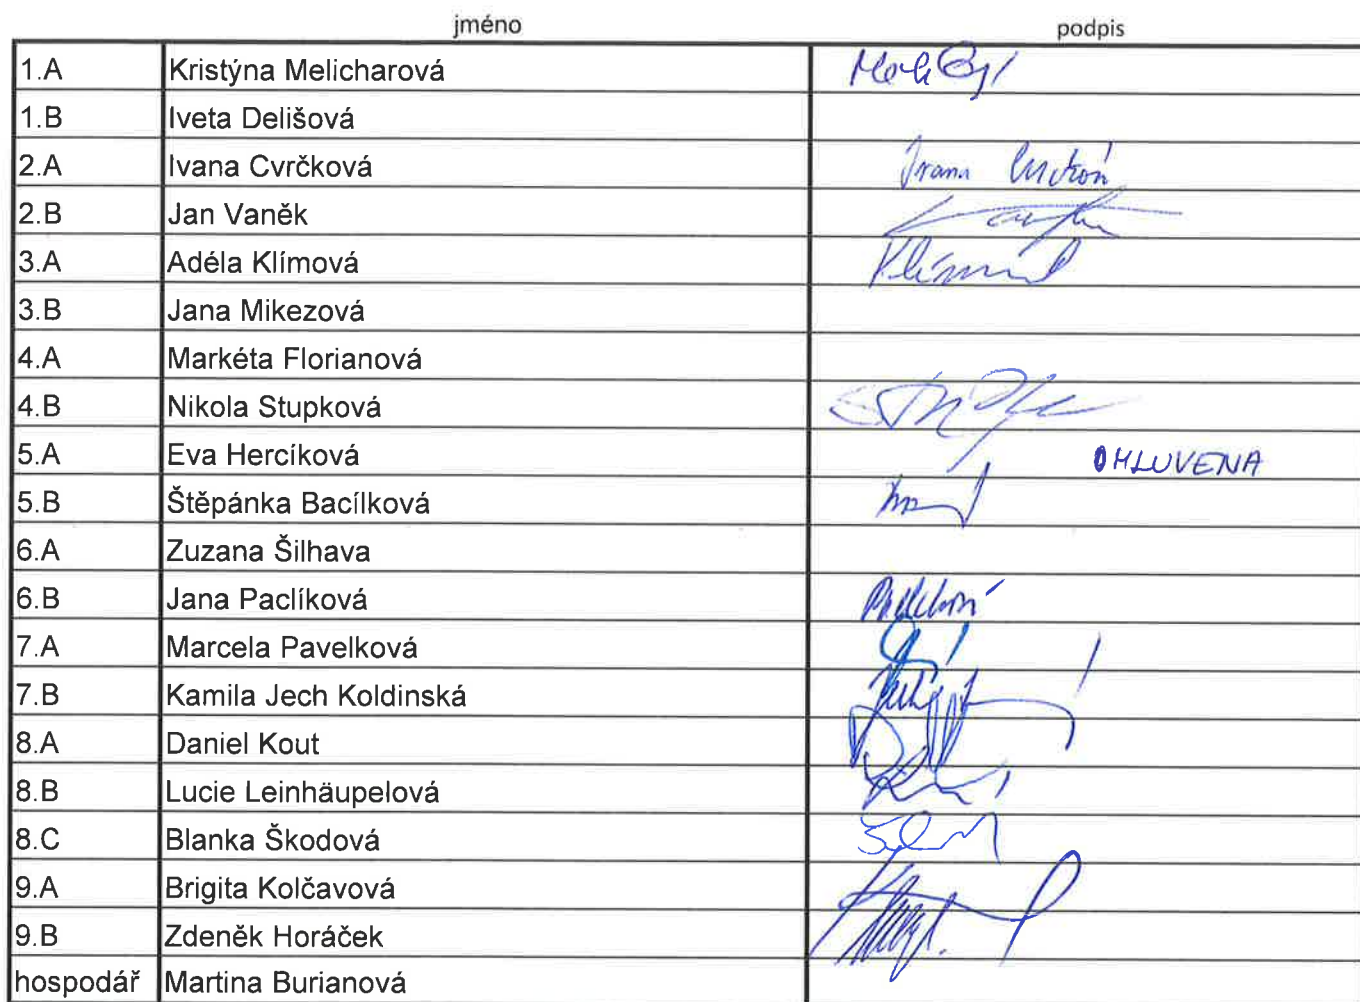 jméno podpis
1.A Kristýna Melicharová
1.B Iveta Delišová
2.A Ivana Cvrčková Ivana
2.B Jan Vaněk
3.A Adéla Klímová
3.B Jana Mikezová
4.A Markéta Florianová
4.B Nikola Stupková
5.A Eva Hercíková OMLUVENA
5.B Štěpánka Bacílková
6.A Zuzana Šilhava
6.B Jana Paclíková
7.A Marcela Pavelková
7.B Kamila Jech Koldinská
8.A Daniel Kout
8.B Lucie Leinhäupelová
8.C Blanka Škodová
9.A Brigita Kolčavová
9.B Zdeněk Horáček
hospodář Martina Burianová